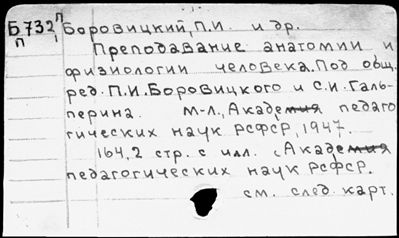 Б732 п Боровицкий, П.И. и др.
п Преподавание анатомии и
физиологии человека. Под общ.
ред. П.И. Боровицкого и С.И. Галь-
перина. М-Л., Академия педаго
гических наук РСФСР, 1947.
164,2 стр. с илл. (Академия
педагогических наук РСФСР.
см. след. карт.